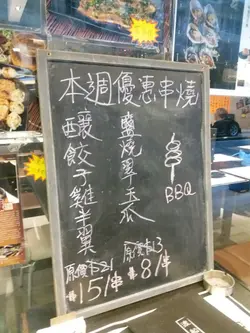 本週優惠串燒
鹽燒翠玉瓜
原價$13
$8/串
釀餃子雞半翼
原價$21
$15/串
BBQ